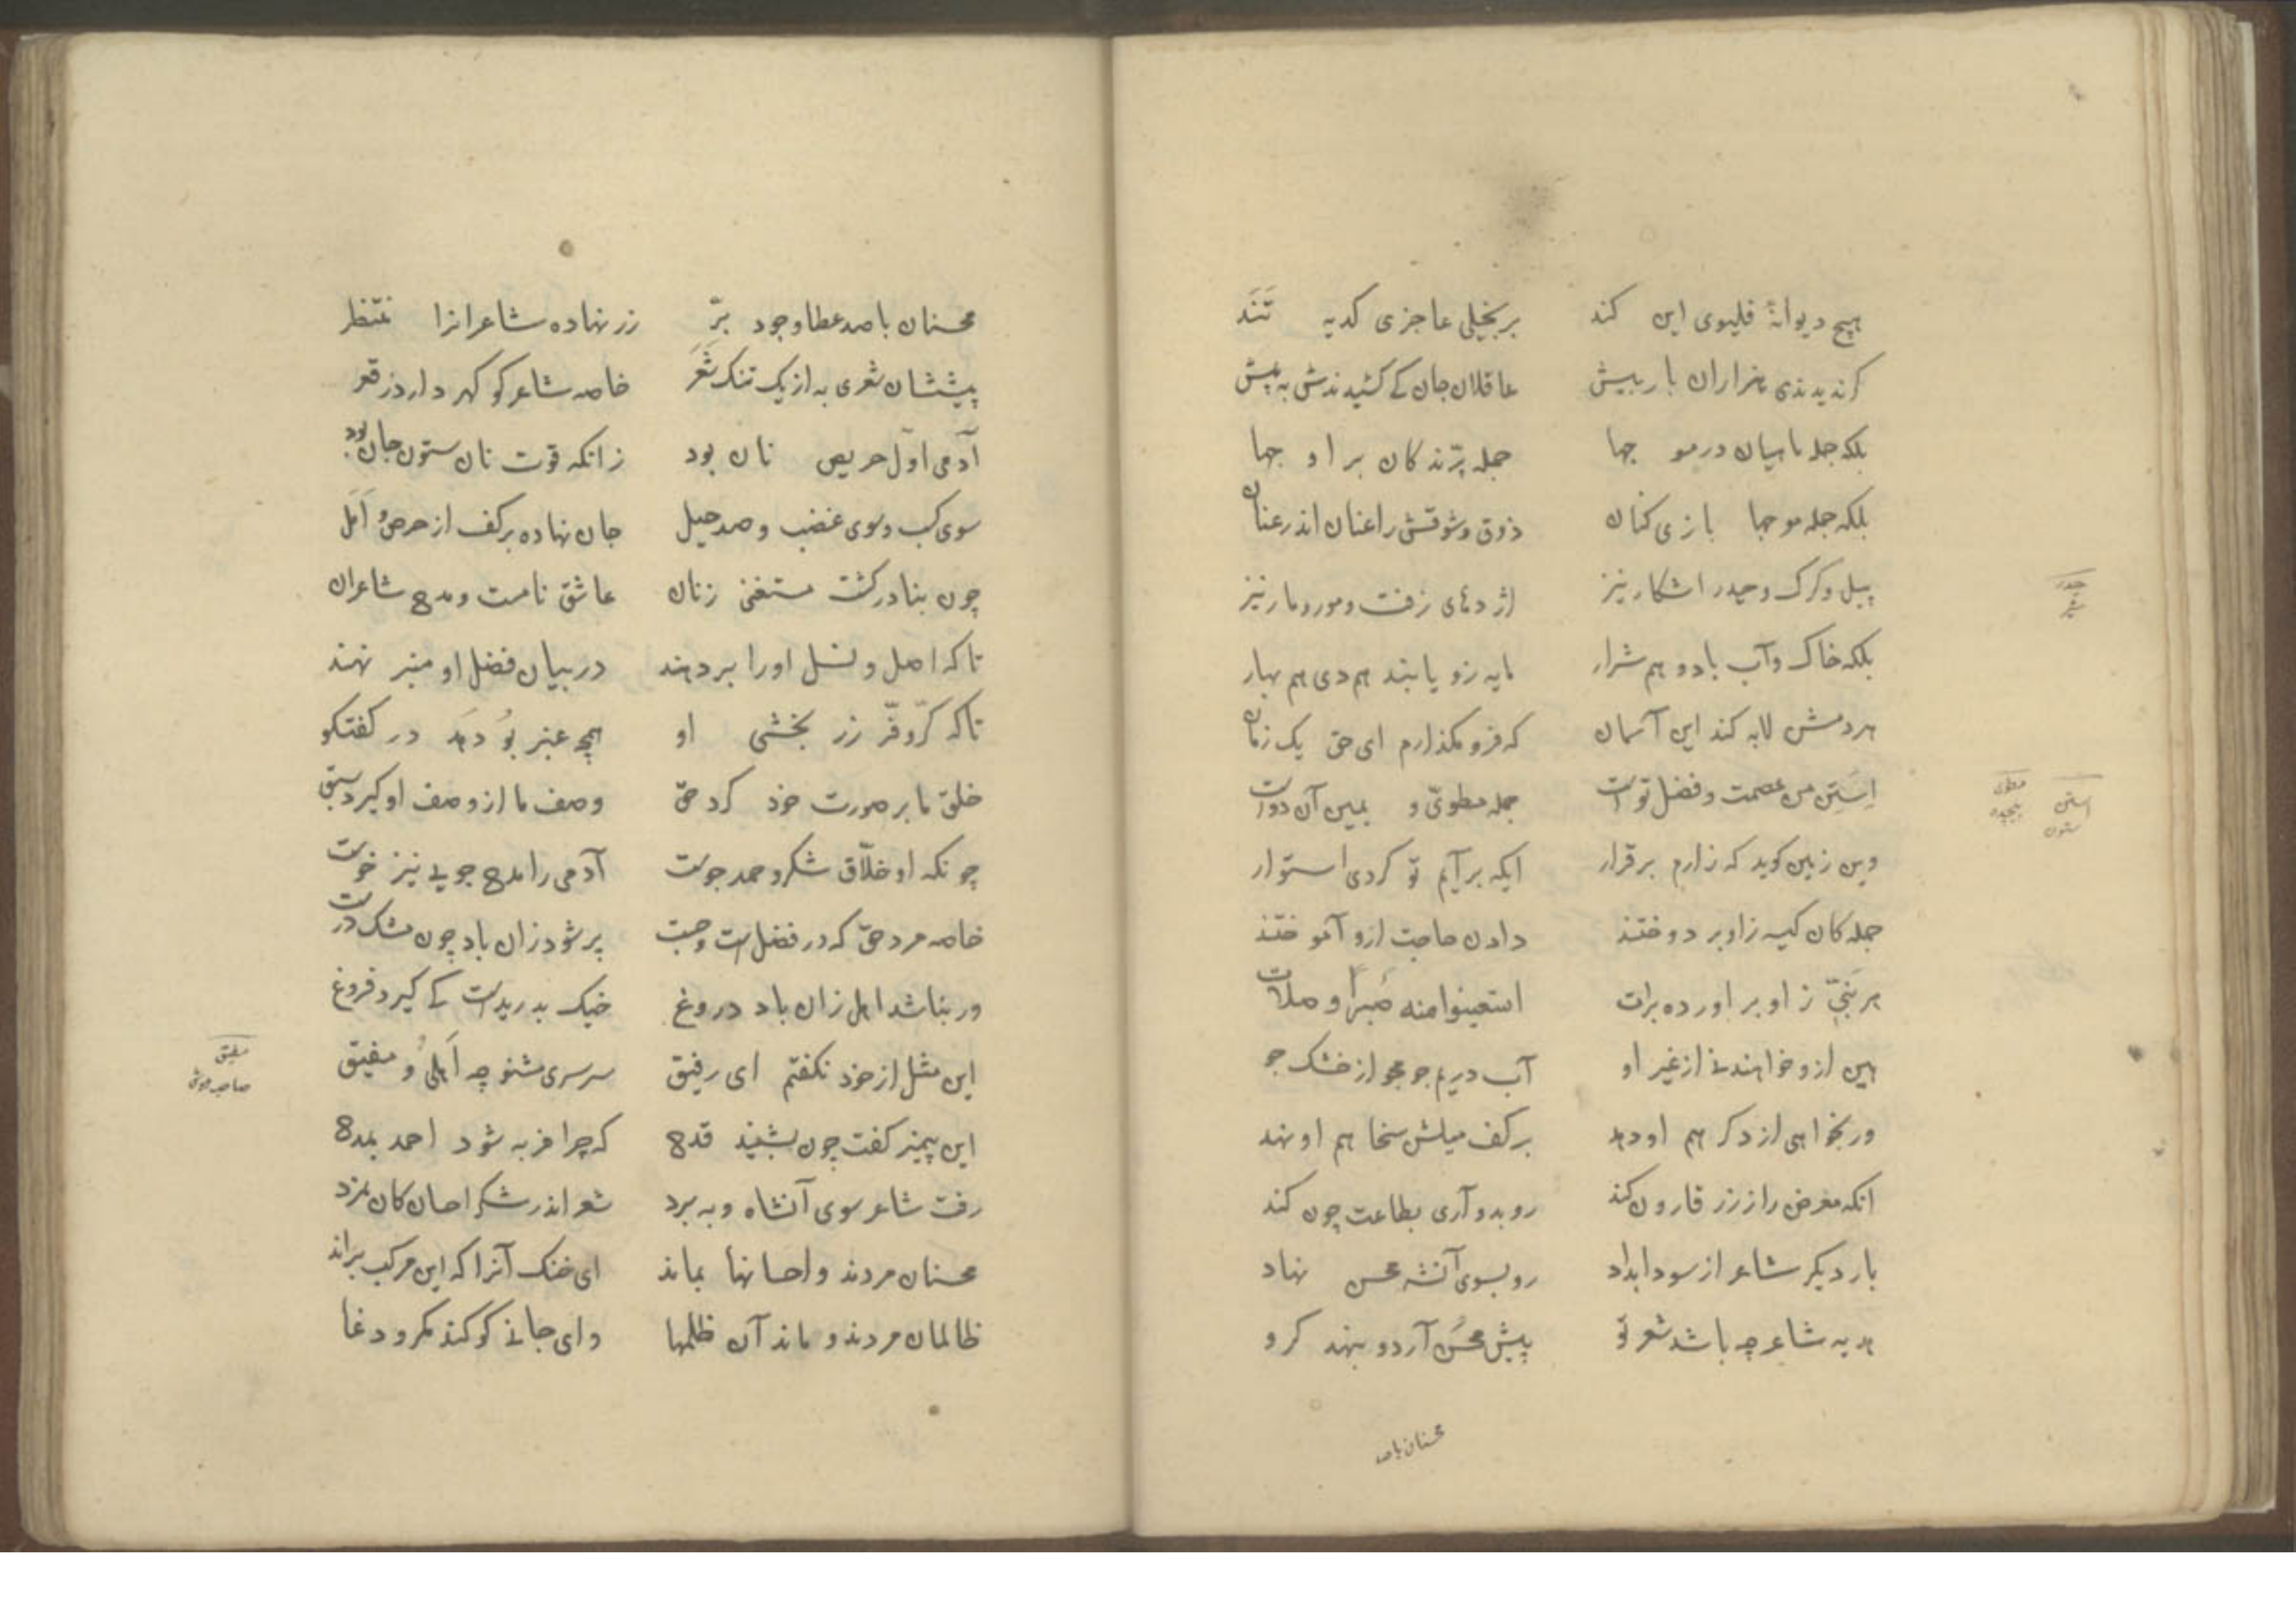 هیچ دیوانهٔ فلیوی این کند بر بخیلی عاجزی کدیه تَنَد
گر ندیدندی هزاران بار بیش عاقلان جان کی کشیدندش به پیش
بلکه جمله ماهیان در موجها جمله پرّندکان بر اوجها
بلکه جمله موجها بازی کنان ذوق و شوقش را عنان اندر عنان
پیل و کرک و حیدر اشکار نیز اژدهای زفت و مور و مار نیز
بلکه خاک و آب باد و هم شرار مایه زو یابند هم دی هم بهار
هر دمش لابه کند این آسمان که فرو مکذارم ای حق یک زمان
اِستِن من عصمت و فضل توست جمله مطویّ و یمین آن دو است
وین زمین کوید که دارم بر قرار ایکه بر آبم تو کردی استوار
جمله کان کیسه زاو بر دوختند دادن حاجت ازو آموختند
هر نَبیّ زاو بر اورده برات استعینوا منه صَبراً و صلات
هین ازو خواهند نی از غیر او آب در یم جو مجو از خشک جو
ور بخواهی از دکر هم او دهد بر کف میلش سخا هم او نهد
انکه معرض را ز زر قارون کند رو بدو آری بطاعت چون کند
بار دیکر شاعر از سودا بداد رو بسوی آنشه محسن نهاد
هدیه شاعر چه باشد شعر نو پیش محسن آرد و بنهد کرو
محسنان باصد
حیدر
شیر
استن
ستون
مطوی
پیچیده
محسنان با صد عطا و جود برّ زر نهاده شاعرانرا منتظر
پیششان شعری به از یک تنک شَعَر خاصه شاعر کو کهر دارد ز قعر
آدمی اوّل حریص نان بود زانکه قوت نان ستون جان بود
سوی کسب و سوی غضب و صد حیل جان نهاده بر کف از حرص و اَمَل
چون بنادر کشت مستغنی زنان عاشق نامست و مدح شاعران
تا که اصل و نسل او را بر دهند در بیان فضل او منبر نهند
تا که کرّ و فرّ زر بخشی او همچو عنبر بُو دَهَد در کفتکو
خلق ما بر صورت خود کرد حق وصف ما از وصف او کیرد سبق
چونکه او خلّاق شکر و حمد جوست آدمی را مدح جویی نیز خوست
خاصه مرد حق که در فضل است و چست پر شود زان باد چون مشک درست
ور بناشد اهل زان باد دروغ خیک بدریدست کی کیرد فروغ
این مثل از خود نکفتم ای رفیق سرسری مشنو چه اَهلی و مفیق
این پیمبر کفت چون بشنید قدح که چرا فربه شود احمد بمدح
رفت شاعر سوی آنشاه و به برد شعر اندر شکر احسان کان نمرد
محسنان مردند و احسانها بماند ای خنک آنرا که این مرکب براند
ظالمان مردند و ماند آن ظلمها وای جانی کو کند مکر و دغا
مفیق
صاحب هوش